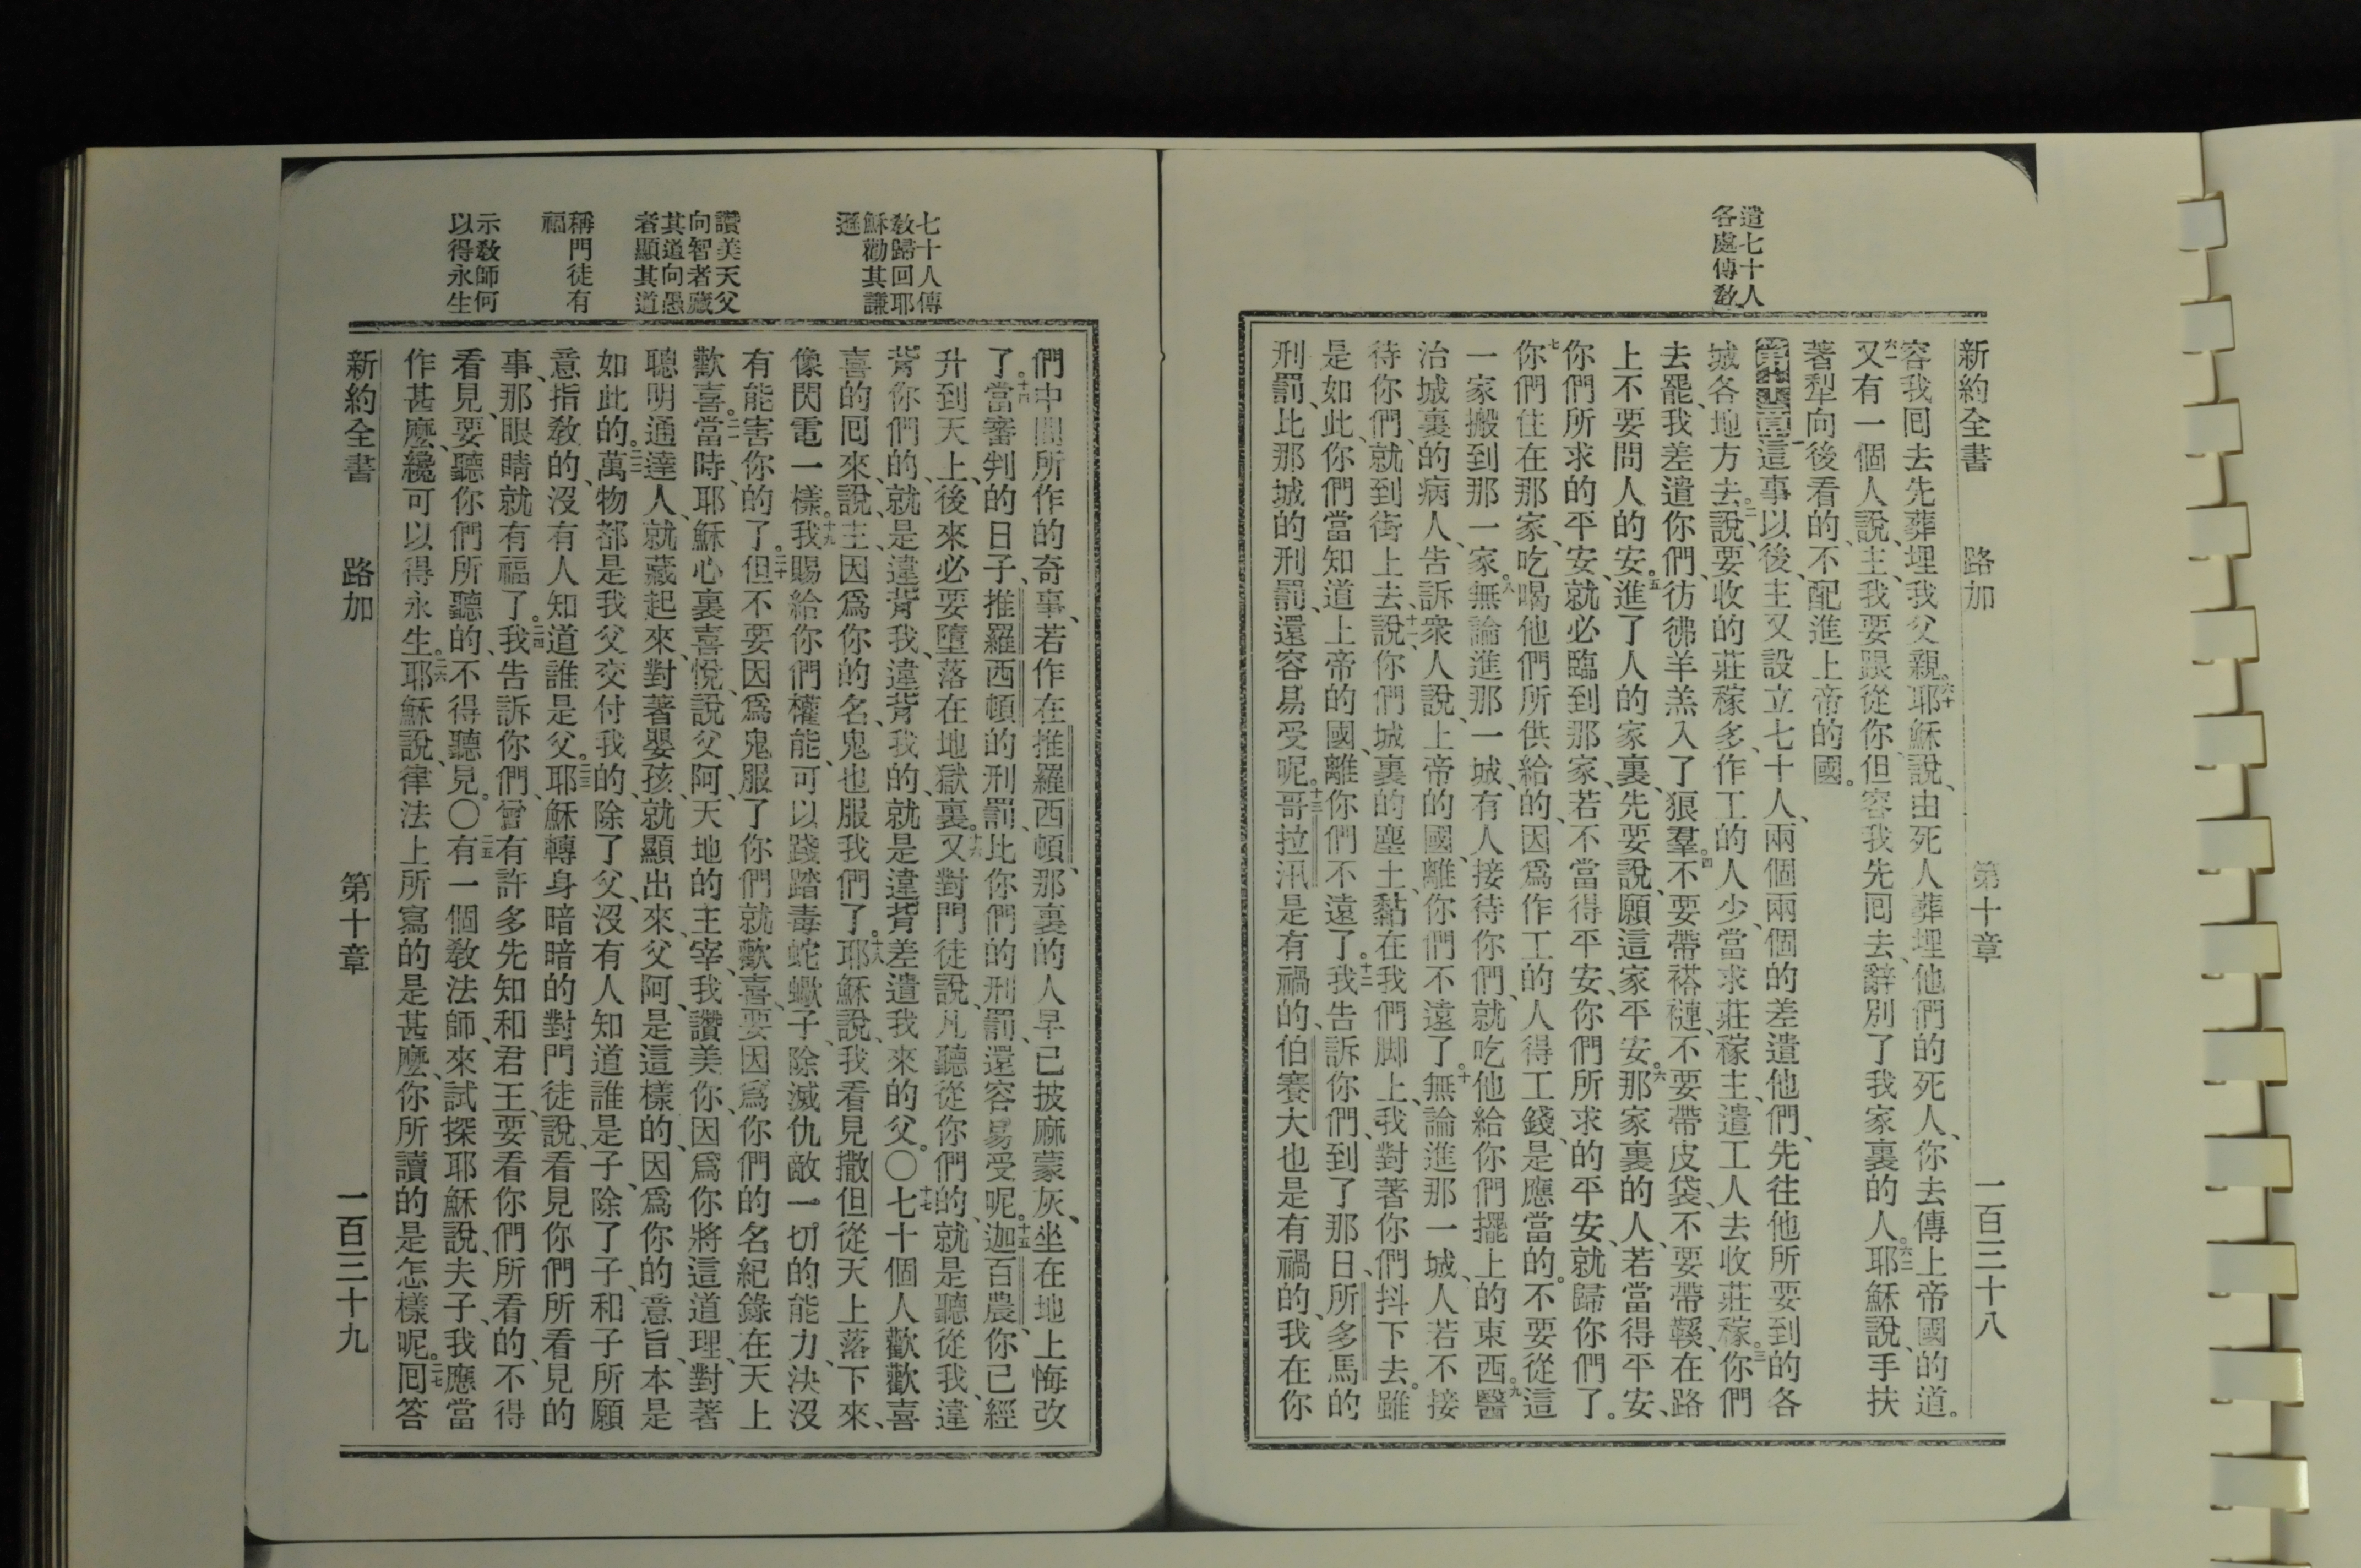 遣七十人
各處傳教
新約全書 路加 第十章 一百三十八
容我回去先葬埋我父親。六十耶穌說、由死人葬埋他們的死人、你去傳上帝國的道。
六一又有一個人說、主、我要跟從你、但容我先回去、辭別了我家裏的人。六二耶穌說、手扶
著犁向後看的、不配進上帝的國。
第十章一這事以後、主又設立七十人、兩個兩個的差遣他們、先往他所要到的各
城各地方去。二說、要收的莊稼多、作工的人少、當求莊稼主、遣工人去收莊稼。三你們
去罷、我差遣你們、彷彿羊羔入了狼羣。四不要帶褡褳、不要帶皮袋、不要帶鞵、在路
上不要問人的安。五進了人的家裏、先要說、願這家平安。六那家裏的人、若當得平安、
你們所求的平安、就必臨到那家、若不當得平安、你們所求的平安、就歸你們了。
七你們住在那家、吃喝他們所供給的、因爲作工的人得工錢、是應當的。不要從這
一家搬到那一家。八無論進那一城、有人接待你們、就吃他給你們擺上的東西。九醫
治城裏的病人、告訴衆人說、上帝的國、離你們不遠了。十無論進那一城、人若不接
待你們、就到街上去、十一說、你們城裏的塵土、黏在我們脚上、我對著你們抖下去。雖
是如此、你們當知道上帝的國、離你們不遠了。十二我告訴你們、到了那日、所多馬的
刑罰、比那城的刑罰、還容易受呢。十三哥拉汛是有禍的、伯賽大也是有禍的、我在你
七十人傳
教歸回耶
穌勸其謙
遜
讚美天父
向智者藏
其道向愚
者顯其道
稱門徒有
福
示教師何
以得永生
們中間所作的奇事、若作在推羅西頓、那裏的人早已披麻蒙灰、坐在地上悔改
了。十四當審判的日子、推羅西頓的刑罰、比你們的刑罰、還容易受呢。十五迦百農、你已經
升到天上、後來必要墮落在地獄裏。十六又對門徒說、凡聽從你們的、就是聽從我、違
背你們的、就是違背我、違背我的、就是違背差遣我來的父。〇十七七十個人歡歡喜
喜的回來、說、主、因爲你的名、鬼也服我們了。十八耶穌說、我看見撒但從天上落下來、
像閃電一樣。十九我賜給你們權能、可以踐踏毒蛇蠍子、除滅仇敵一切的能力、決沒
有能害你的了。二十但不要因爲鬼服了你們就歡喜、要因爲你們的名紀錄在天上
歡喜。二一當時、耶穌心裏喜悅、說、父阿、天地的主宰、我讚美你、因爲你將這道理、對著
聰明通達人、就藏起來、對著嬰孩、就顯出來、父阿、是這樣的、因爲你的意旨、本是
如此的。二二萬物都是我父交付我的、除了父、沒有人知道誰是子、除了子、和子所願
意指教的、沒有人知道誰是父。二三耶穌轉身暗暗的對門徒說、看見你們所看見的
事、那眼睛就有福了。二四我告訴你們、曾有許多先知和君王、要看你們所看的、不得
看見、要聽你們所聽的、不得聽見。〇二五有一個教法師、來試探耶穌說、夫子、我應當
作甚麼、纔可以得永生。二六耶穌說、律法上所寫的是甚麼、你所讀的是怎樣呢。二七回答
新約全書 路加 第十章 一百三十九